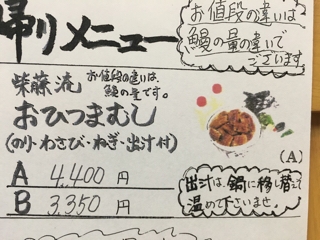 帰りメニュー
お値段の違いは
鰻の量の違いで
ございます
柴藤流
お値段の違いは、
鰻の量です。
おひつまむし
(のり・わさび・ねぎ・出汁付)
(A)
A 4,400円
B 3,350円
出汁は、鍋に移し替えて
温めて下さいませ